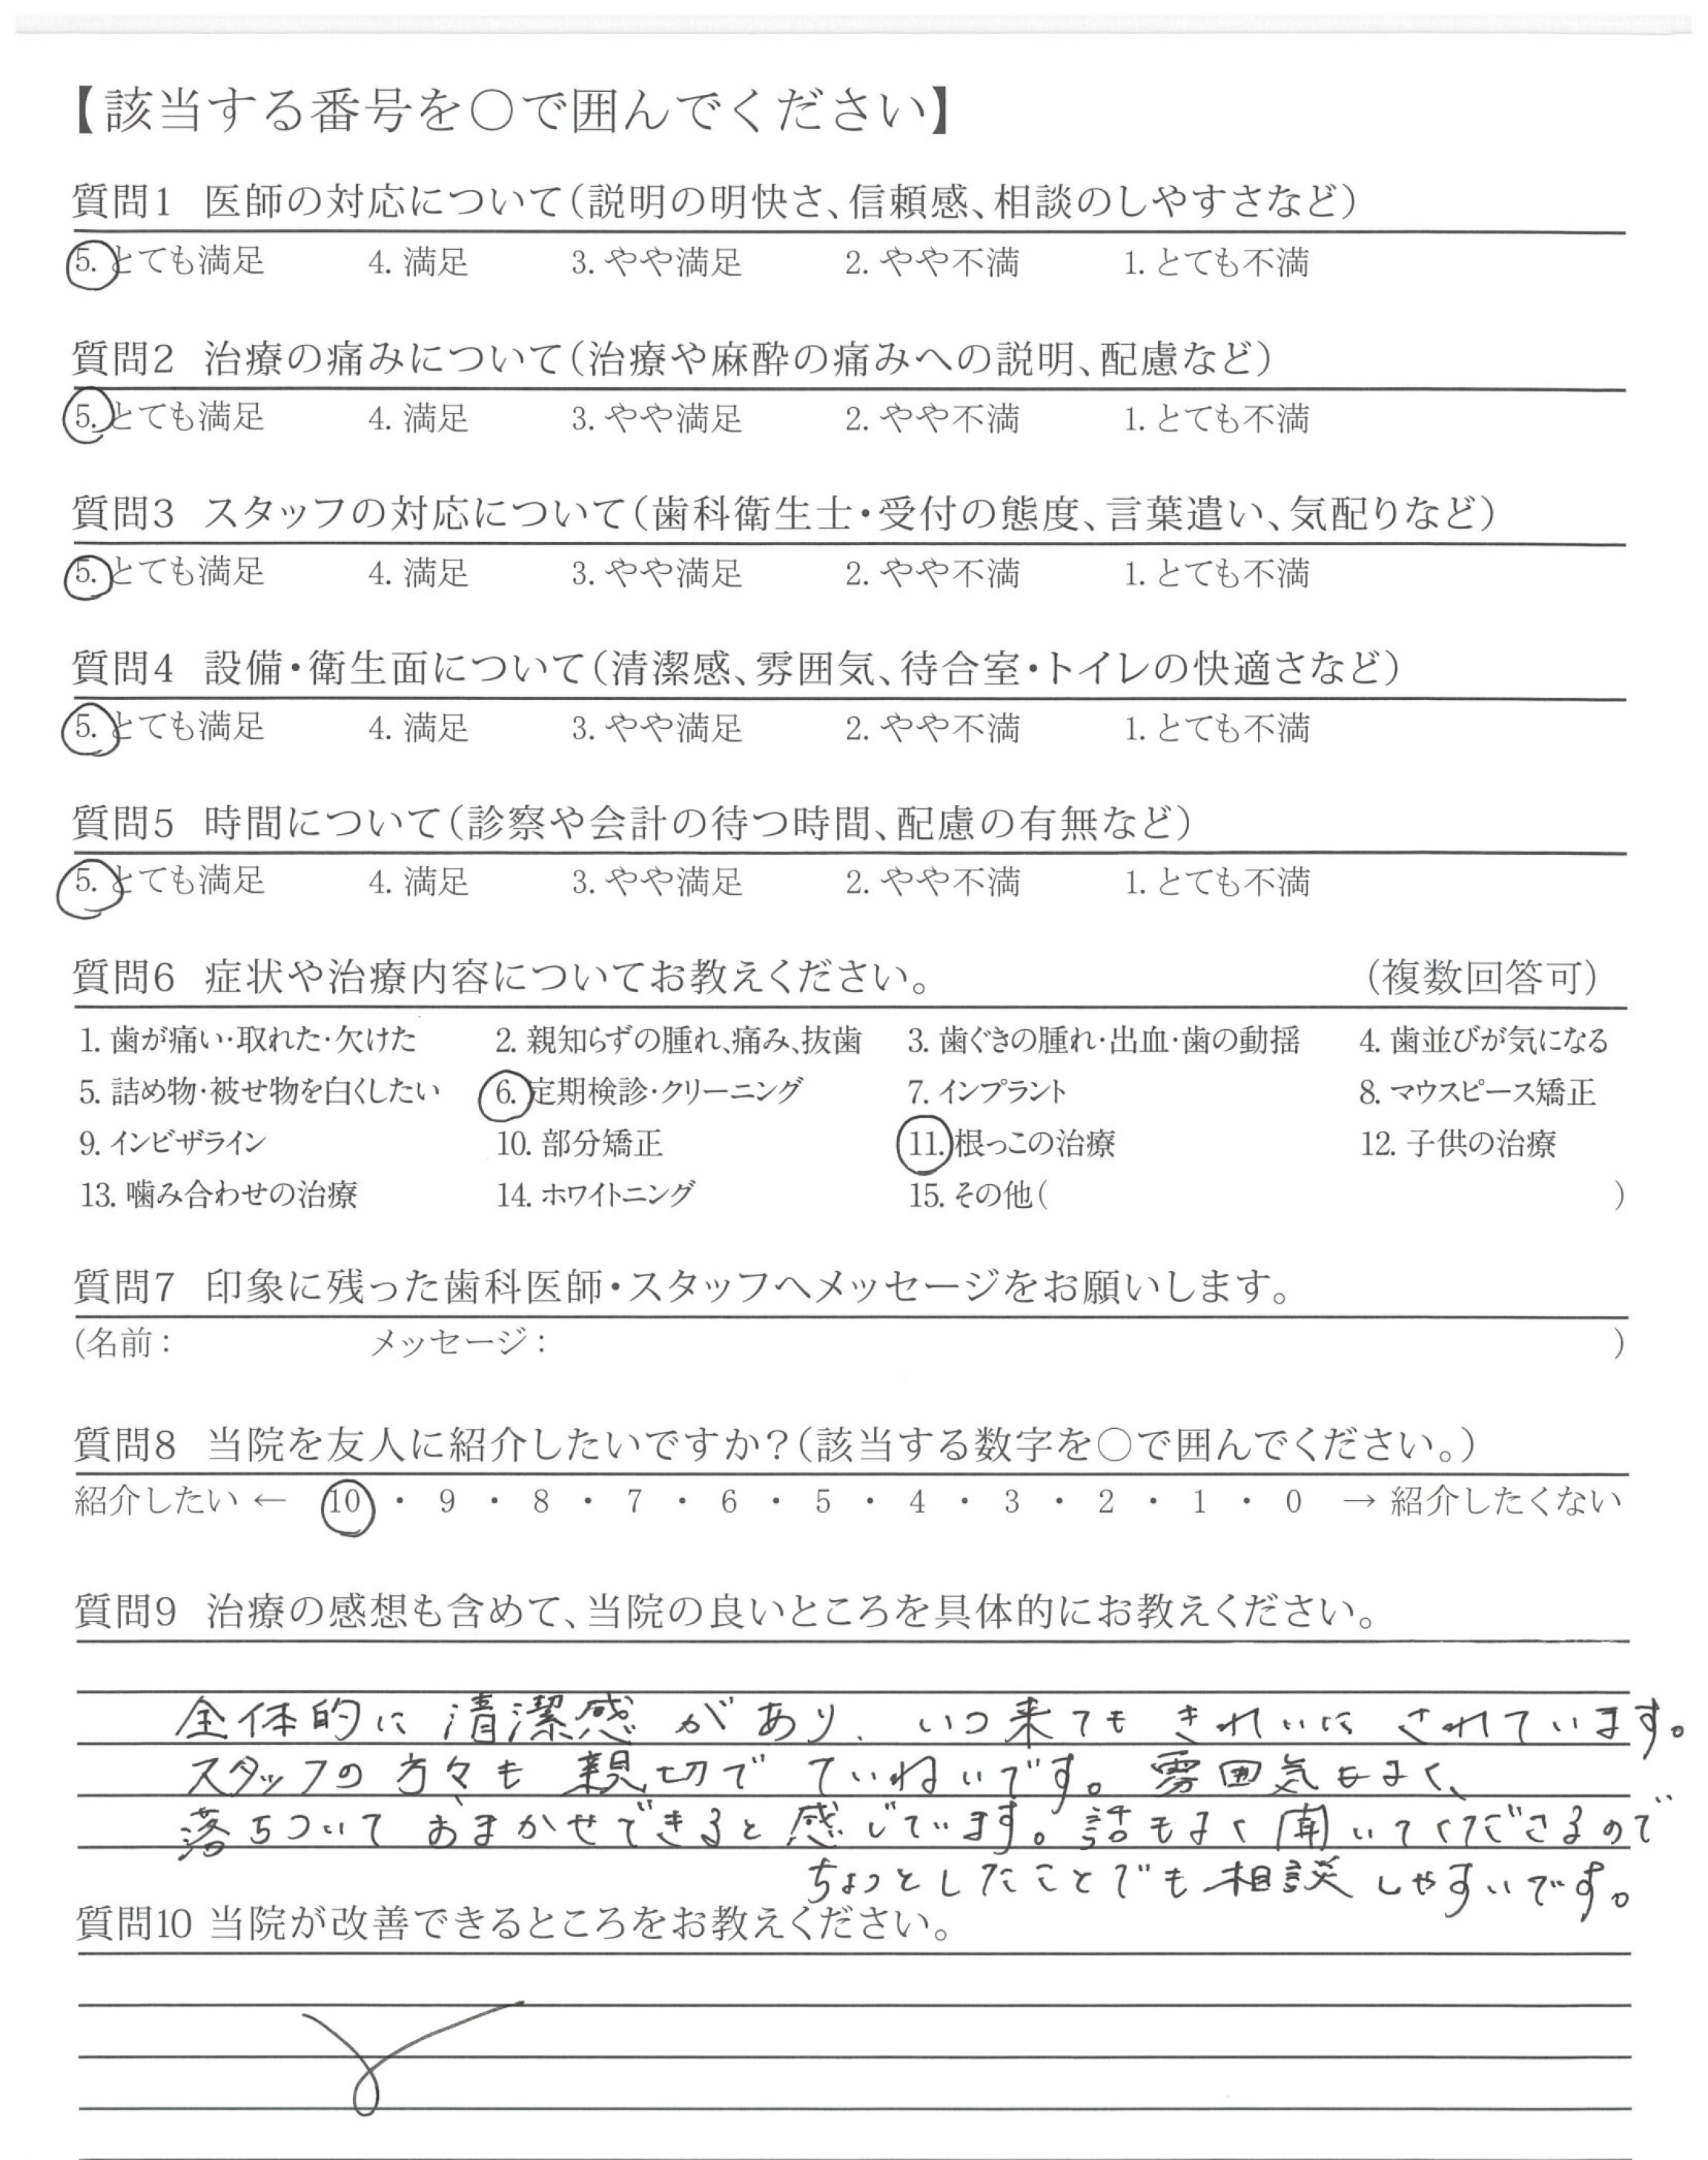 【該当する番号を○で囲んでください】
質問1 医師の対応について(説明の明快さ、信頼感、相談のしやすさなど)
5. とても満足 4. 満足 3. やや満足 2. やや不満 1. とても不満
質問2 治療の痛みについて(治療や麻酔の痛みへの説明、配慮など)
5. とても満足 4. 満足 3. やや満足 2. やや不満 1. とても不満
質問3 スタッフの対応について(歯科衛生士・受付の態度、言葉遣い、気配りなど)
5. とても満足 4. 満足 3. やや満足 2. やや不満 1. とても不満
質問4 設備・衛生面について(清潔感、雰囲気、待合室・トイレの快適さなど)
5. とても満足 4. 満足 3. やや満足 2. やや不満 1. とても不満
質問5 時間について(診察や会計の待つ時間、配慮の有無など)
5. とても満足 4. 満足 3. やや満足 2. やや不満 1. とても不満
質問6 症状や治療内容についてお教えください。 (複数回答可)
1. 歯が痛い・取れた・欠けた 2. 親知らずの腫れ、痛み、抜歯 3. 歯ぐきの腫れ・出血・歯の動揺 4. 歯並びが気になる
5. 詰め物・被せ物を白くしたい 6. 定期検診・クリーニング 7. インプラント 8. マウスピース矯正
9. インビザライン 10. 部分矯正 11. 根っこの治療 12. 子供の治療
13. 噛み合わせの治療 14. ホワイトニング 15. その他( )
質問7 印象に残った歯科医師・スタッフへメッセージをお願いします。
(名前： メッセージ： )
質問8 当院を友人に紹介したいですか？(該当する数字を○で囲んでください。)
紹介したい ← 10 ・ 9 ・ 8 ・ 7 ・ 6 ・ 5 ・ 4 ・ 3 ・ 2 ・ 1 ・ 0 → 紹介したくない
質問9 治療の感想も含めて、当院の良いところを具体的にお教えください。
全体的に清潔感があり、いつ来てもきれいにされています。
スタッフの方々も親切でていねいです。雰囲気もよく、
落ちついておまかせできると感じています。話もよく聞いてくださるので
ちょっとしたことでも相談しやすいです。
質問10 当院が改善できるところをお教えください。